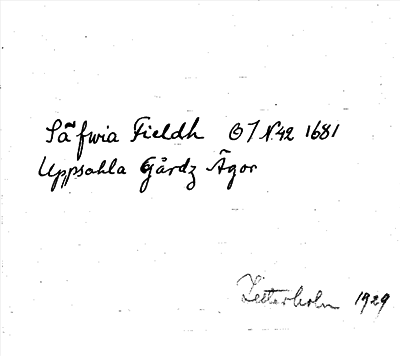 Säfwia Fieldh G7 N:42 1681
Uppsahla Gårdz Ägor
Zetterholm 1929